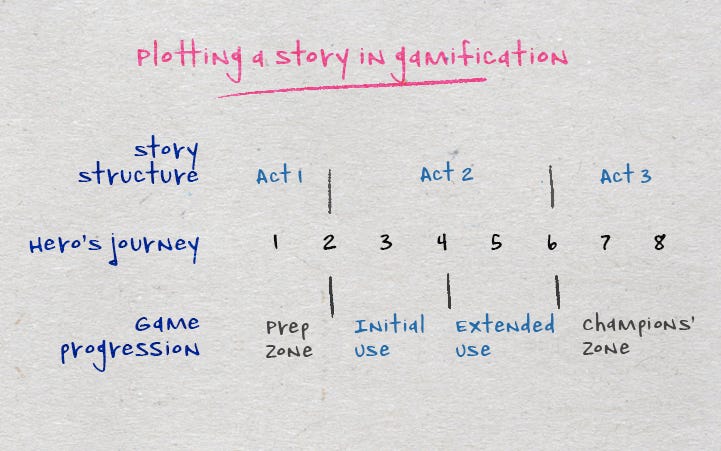 plotting a story in gamification
story
structure
Act 1 Act 2 Act 3
Hero's journey 1 2 3 4 5 6 7 8
Game
progression
Prep
zone
Initial
use
Extended
use
Champions'
zone